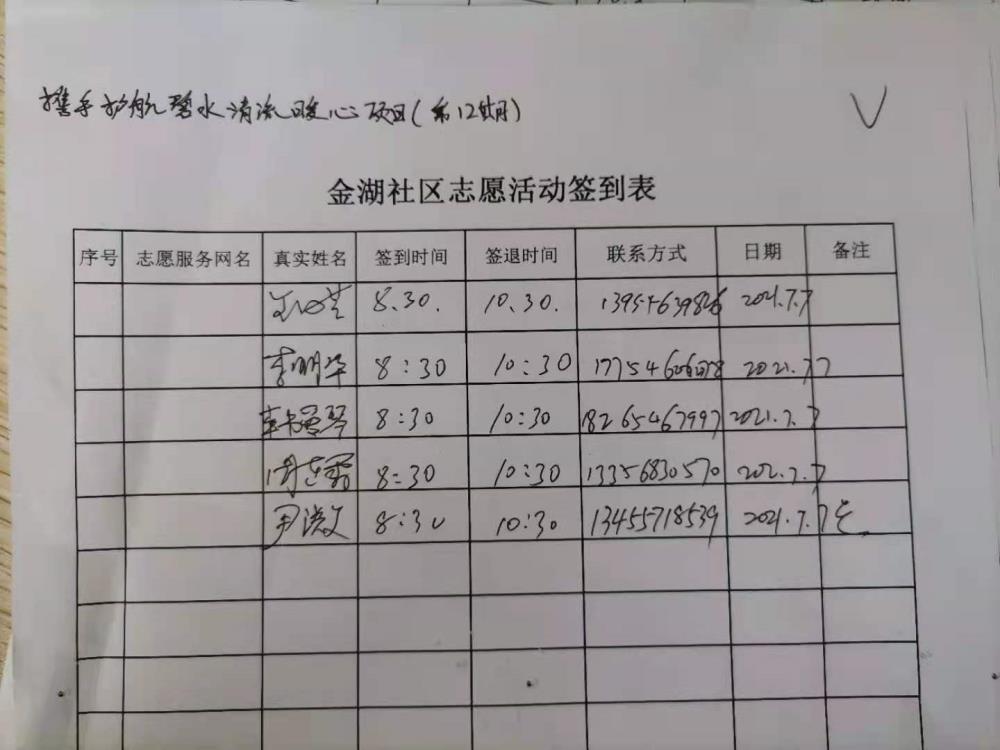 携手护航碧水清流暖心项目(第12期)
金湖社区志愿活动签到表
序号 志愿服务网名 真实姓名 签到时间 签退时间 联系方式 日期 备注
8.30. 10.30. 13954639826 2021.7.7
李明华 8:30 10:30 2021.7.7
韩爱琴 8:30 10:30 18265467997 2021.7.7
8:30 10:30 13356830570 2021.7.7
尹洪文 8:30 10:30 13455718539 2021.7.7